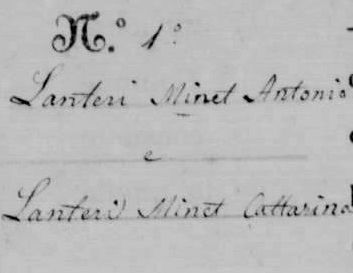 N.º 1º
Lanteri Minet Antonio
e
Lanteri Minet Cattarina